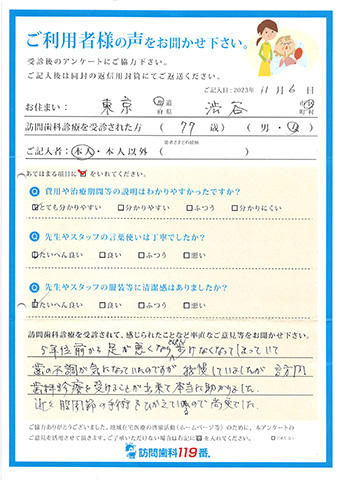 ご利用者様の声をお聞かせ下さい。
受診後のアンケートにご協力下さい。
ご記入後は同封の返信用封筒にてご返送ください。
ご記入日：2023年 11月 6日
お住まい： 東京 都道府県 渋谷 市区町村
訪問歯科診療を受診された方 （ 77 歳） （ 男・女 ）
患者さまとの続柄
ご記入者：本人・本人以外（ ）
あてはまる項目に✓をいれてください。
Q 費用や治療期間等の説明はわかりやすかったですか？
☑とても分かりやすい □分かりやすい □ふつう □分かりにくい
Q 先生やスタッフの言葉使いは丁寧でしたか？
☑たいへん良い □良い □ふつう □悪い
Q 先生やスタッフの服装等に清潔感はありましたか？
☑たいへん良い □良い □ふつう □悪い
訪問歯科診療を受診されて、感じられたことなど率直なご意見等をお聞かせ下さい。
5年位前から足が悪くなり歩けなくなってしまっていて
歯の不調が気になっていたのですが 我慢していましたが 訪問
歯科診療を受けることが出来て本当に助かりました。
近々股関節の手術をひかえているので尚更でした。
ご協力ありがとうございました。地域在宅医療の啓蒙活動（ホームページ等）のために、本アンケートの
ご意見を活用させて頂きます。ご了承いただけない場合は右記に✓を入れてください。
訪問歯科119番。